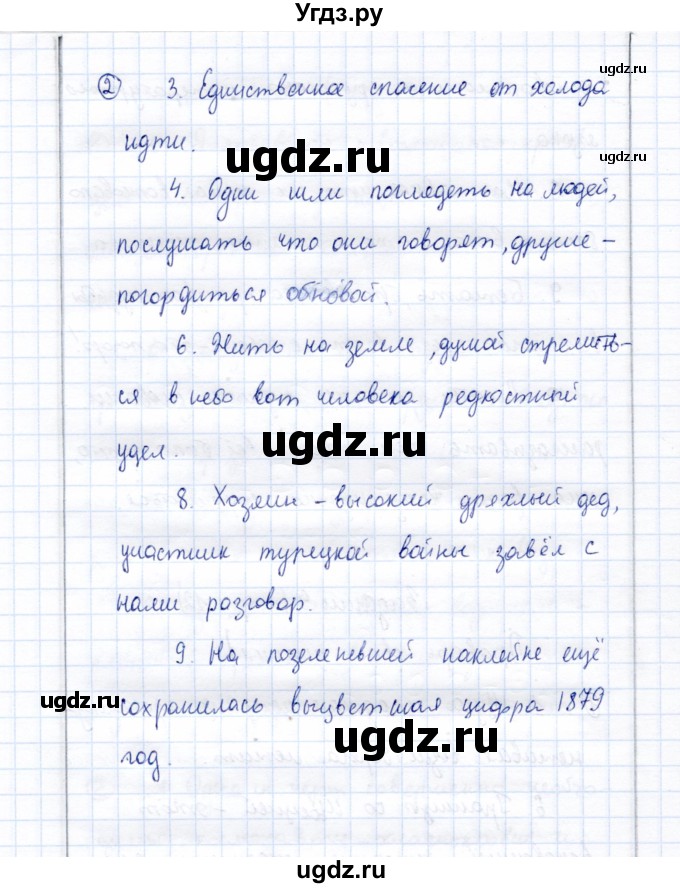 Угдз.ру
② 3. Единственное спасение от холода
ugdz.ru
идти.
ugdz.ru
4. Одни шли поглядеть на людей,
послушать что они говорят, другие -
погордиться обновой.
6. Жить на земле, думой стремить-
ся в небо вот человека редкостный
ugdz.ru
удел.
8. Хозяин - высокий дряхлый дед,
участник турецкой войны завёл с
нами разговор.
9. На позеленевшей наклейке ещё
ugdz.ru
сохранилась выцветшая цифра 1879
ugdz.ru
год.
ugdz.ru